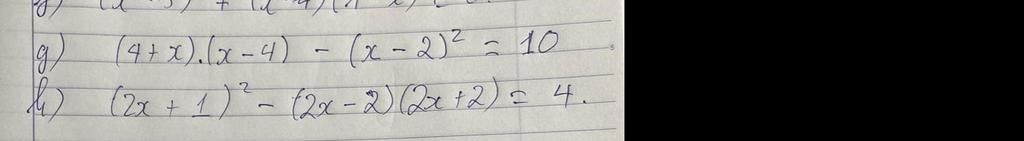 g) (4+x).(x-4) - (x-2)² = 10
h) (2x + 1)² - (2x-2)(2x+2) = 4.